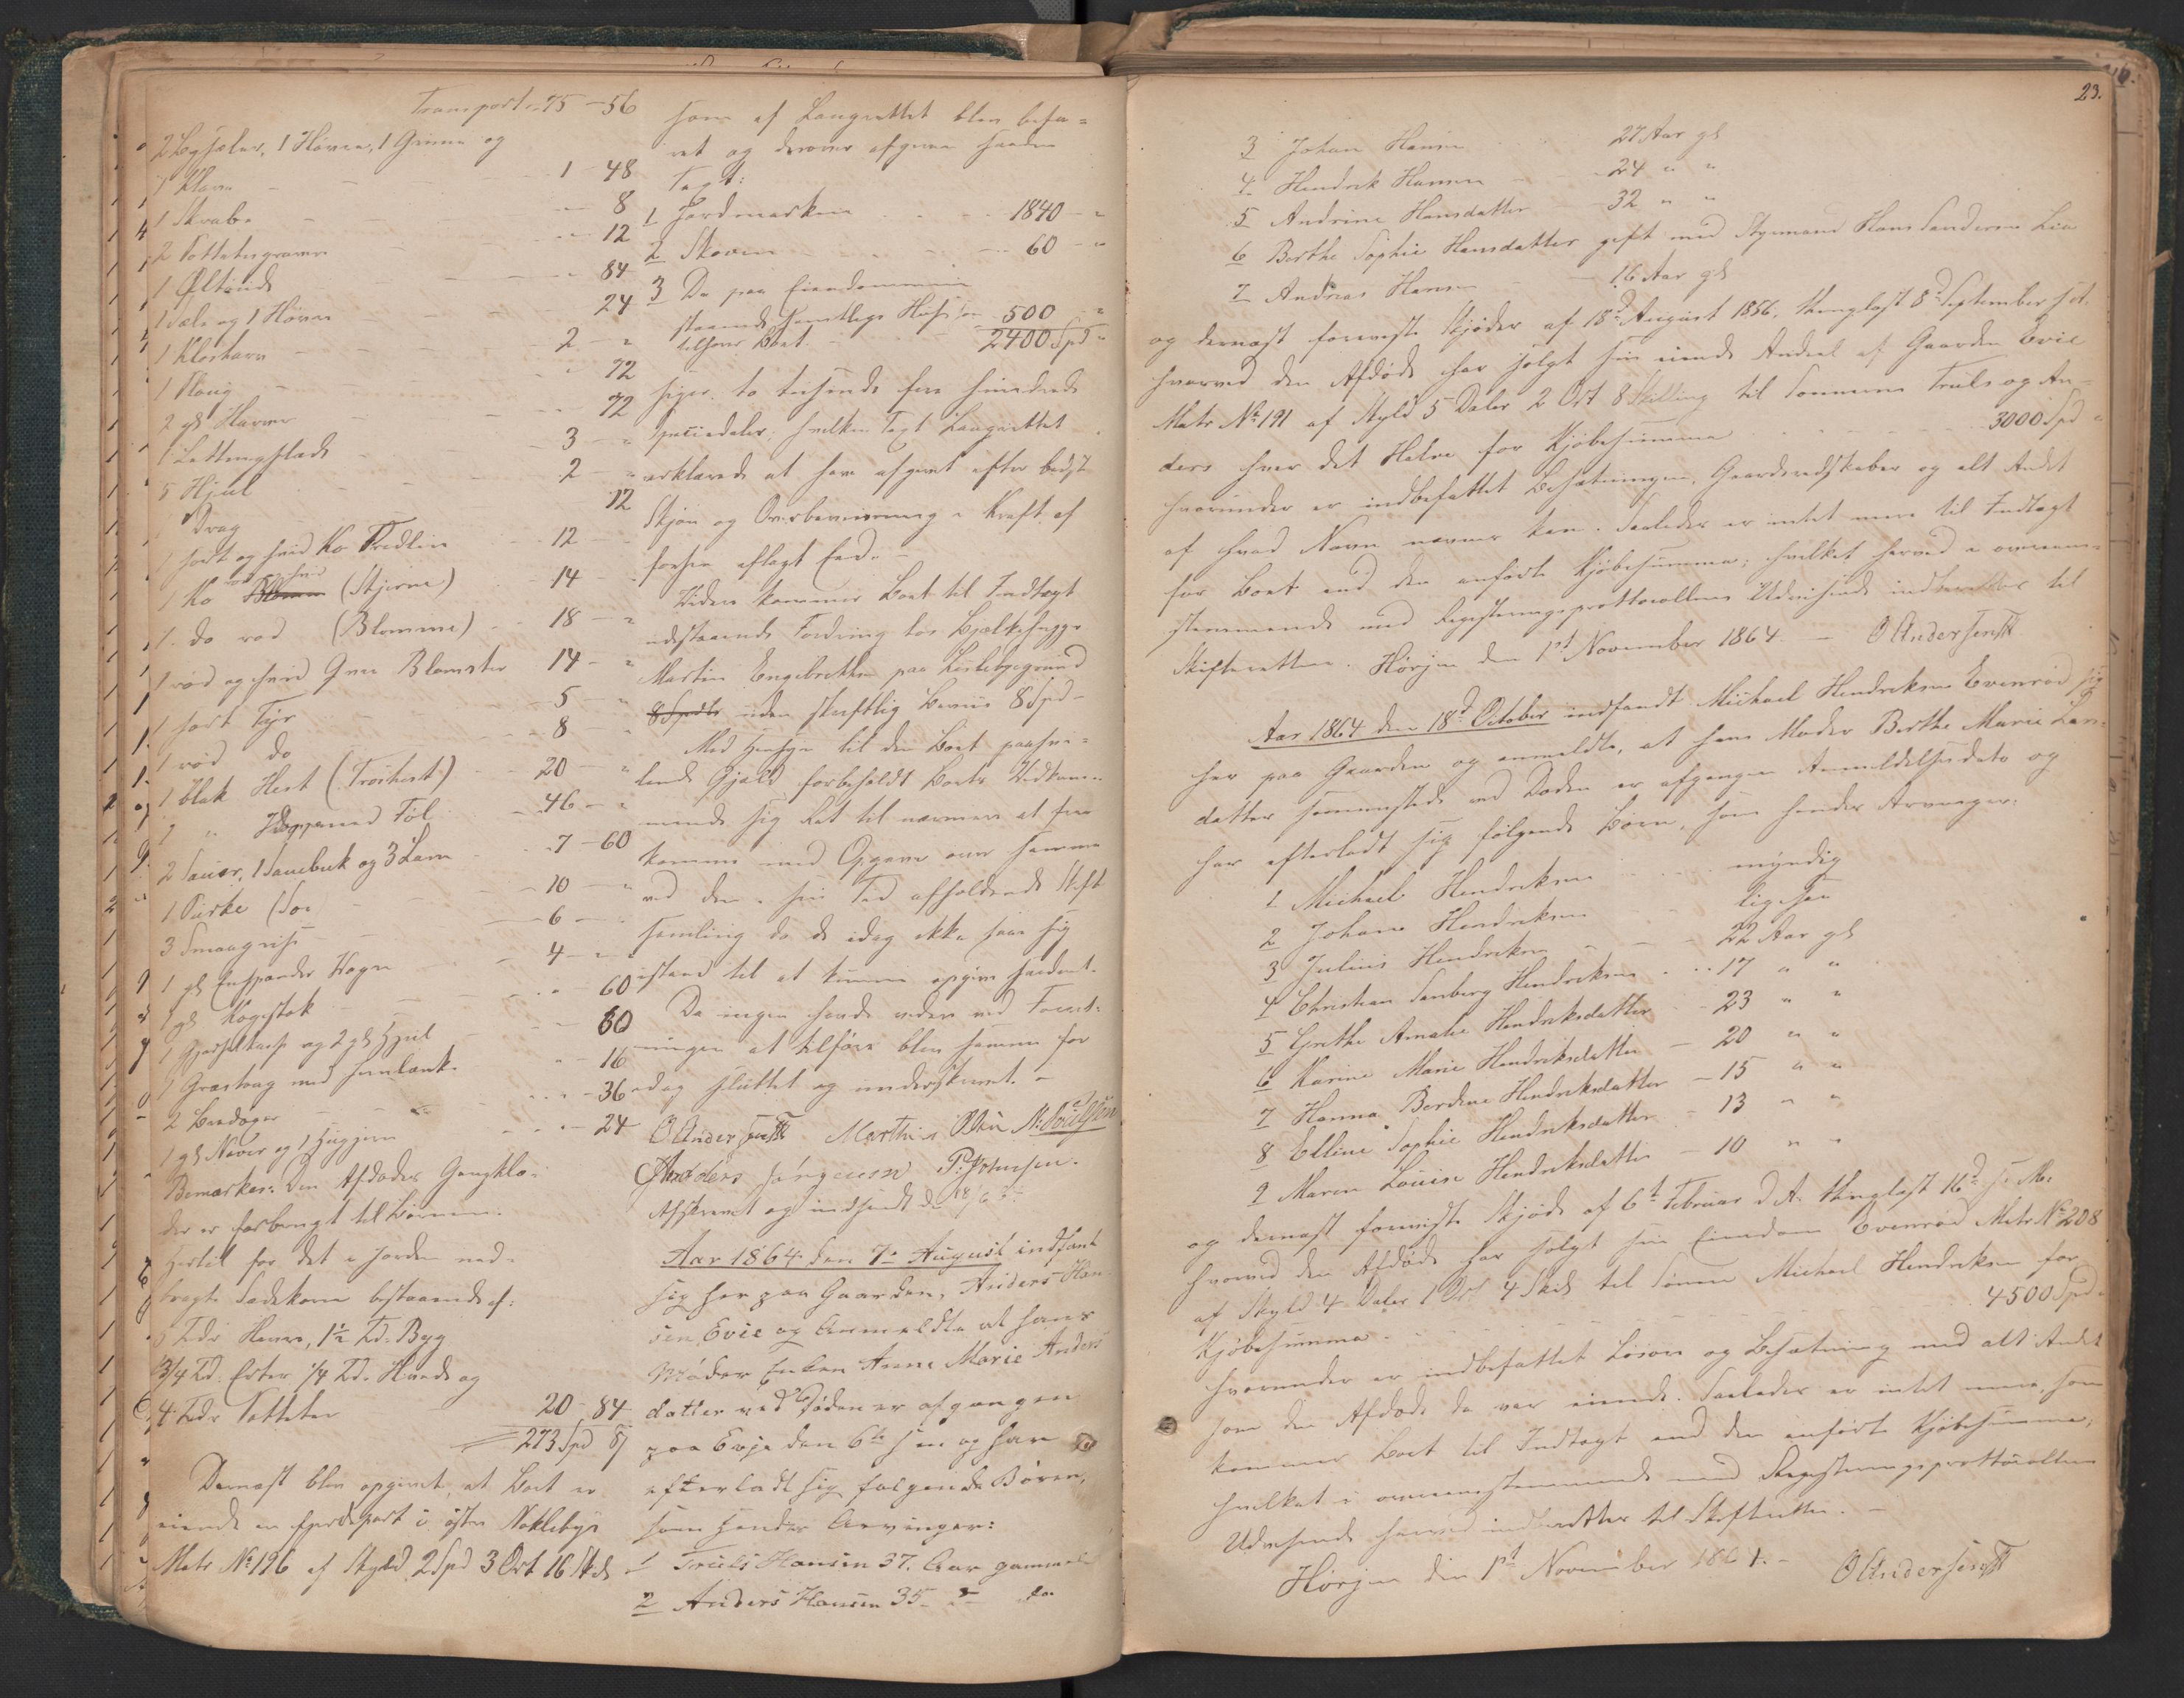 Transport 75 - 56
2 Bysæler, 1 Høvre, 1 Grime og
1 Klave 1 - 48
1 Skrabe " 8
2 Potetesgravere " 12
1 Øltønde " 84
1 Sæle og 1 Høvre 24
1 Klovharv 2 - "
1 Ploug " 72
2 gl Harver 72
1 3 - "
5 Hjul 2 - "
Drag 12
1 sort og hvid Ko Fredlin 12 - "
1 Ko rød hvid (Stjerne) 14 - "
1 do rød (Blomme) 18 - "
1 rød og hvid Qvie Blomster 14 - "
1 sort Tyr 5 - "
1 rød do 8 - "
1 blak Hest (Troihest) 20 - "
1 " Hoppe med Føl 46 - "
2 Sauer, 1 Sauebuk og 3 Lam 7 - 60
1 Purke (So) 10 - "
3 Smaagrise 6 - "
1 gl Enspænder Vogn 4 - "
1 gl 60
1 og 2 gl Hjul 60
1 med 16
2 36
1 gl Naver og 1 Hugjern 24
Bemærkes: Den Afdødes Gangklæ-
der er forbrugt til Børnene.
Hertil for det i Jorden ned-
bragte Sædekorn bestaaende af:
5 Tdr Havre, 1½ Td. Byg
3/4 Td: Erter 1/4 Td. Hvede og
4 Tdr Potteter 20 - 84
273 Spd 8 ß
Dernæst blev opgivet, at Boet er
eiende en Fjerdepart i østre Noklebye
Matr No 196 af Skyld 2 Spd 3 Ort 16 Sk
som af Laugrettet blev besa-
ret og derover afgiven saaden
Taxt:
1 Jordmarken 1840 - "
2 Skoven 60 - "
3 De paa Eiendommen
staaende samtlige Huse 500 "
tilhører Boet 2400 Spd "
siger to tusinde fire hundrede
Speciedaler, hvilken Taxt Laugrettet
erklærede at have afgivet efter bedste
Skjøn og Overbeviisning i Kraft af
forhen aflagt Eed. -
Videre kommer Boet til Indtægt
udestaaende Fordring hos Bjelkehugger
Martin Engebrethsen paa
8 Spdlr uden skriftlig Beviis 8 Spd -
Med Hensyn til den Boet paahvi-
lende Gjæld forbeholdt Boets Vedkom-
mende sig Ret til nærmere at frem
komme med Opgave over samme
ved den i sin Tid afholdende Skift
samling da de idag ikke saae sig
istand til at kunne opgive saadant.
Da ingen havde videre ved Forret-
ningen at tilføre blev samme for
idag sluttet og underskrevet. -
O Andersen Marthin Olsen N: Poulsen
Anders Jørgensen P: Johnsen.
Afskrevet og indsendt d
Aar 1864 den 7de August indfant
sig her paa Gaarden, Anders Han
sen Evie og Anmeldte at hans
Moder Enken Anne Marie Anders
datter ved Døden er afgangen
paa Evje den 6te hm og har
efterladt sig følgende Børen,
som hendes Arvinger:
1 Truls Hansen 37. Aar gammel
2 Anders Hansen 35 " do
23.
3 Johan Hansen 27 Aar gl
4 Hendrik Hansen 24 " "
5 Andrine Hansdatter 32 " "
6 Berthe Sophie Hansdatter gift med Styrmand Hans Sandersen Lia
7 Andreas Hansen 16 Aar gl
og dernæst foreviste Skjøder af 18d August 1856, thinglæst 8d September s.A.
hvorved den Afdøde har solgt sin eiende Andeel af Gaarden Evie
Matr No 191 af Skyld 5 Daler 2 Ort 8 Skilling til Sønnerne Truls og An-
ders hver det Halve for Kjøbesumma 3000 Spd "
hvorunder er indbefattet Besætningen, Gaardsredskaber og alt Andet
af hvad Navn nævnes kan. Saaledes er intet mere til Indtægt
for Boet end den anførte Kjøbesumma, hvilket herved i overeens-
stemmende med Registeringsprottocollens Udvisende indberettes til
Skifteretten. Hørjen den 1st November 1864. - O Andersen
Aar 1864 den 18d October indfandt Michael Hendriksen Evenrød sig
her paa Gaarden og anmeldte, at hans Moder Berthe Marie Lar-
datter sammesteds ved Døden er afgangen Anmeldelsesdato og
har efterladt sig følgende Børn, som hendes Arvinger:
1 Michael Hendriksen myndig
2 Johan Hendriksen ligesaa
3 Julius Hendriksen 22 Aar gl
4 Christian Sanberg Hendriksen 17 " "
5 Grethe Amalie Hendriksdatter 23 " "
6 Karine Marie Hendriksdatter 20 " "
7 Hanna Berdine Hendriksdatter 15 " "
8 Elline Sophie Hendriksdatter 13 " "
9 Maren Louise Hendriksdatter 10 " "
og dernæst foreviste Skjøde af 6t Februar d.A. thinglæst 16d s. M.
hvorved den Afdøde har solgt sin Eiendom Evenrød Matr No 208
af Skyld 4 Daler 1 Ort 4 Skil til Sønnen Michael Hendriksen for
Kjøbesumma 4500 Spd "
hvorunder er indbefattet Løsøre og Besætning med alt Andet
som den Afdøde da var eiende. Saaledes er intet mere, som
kommer Boet til Indtægt end den anførte Kjøbesumma,
hvilket i overeensstemmende med Registeringsprottocollens
Udvisende herved indberettes til Skifteretten. -
Hørjen den 1st November 1864. - O Andersen